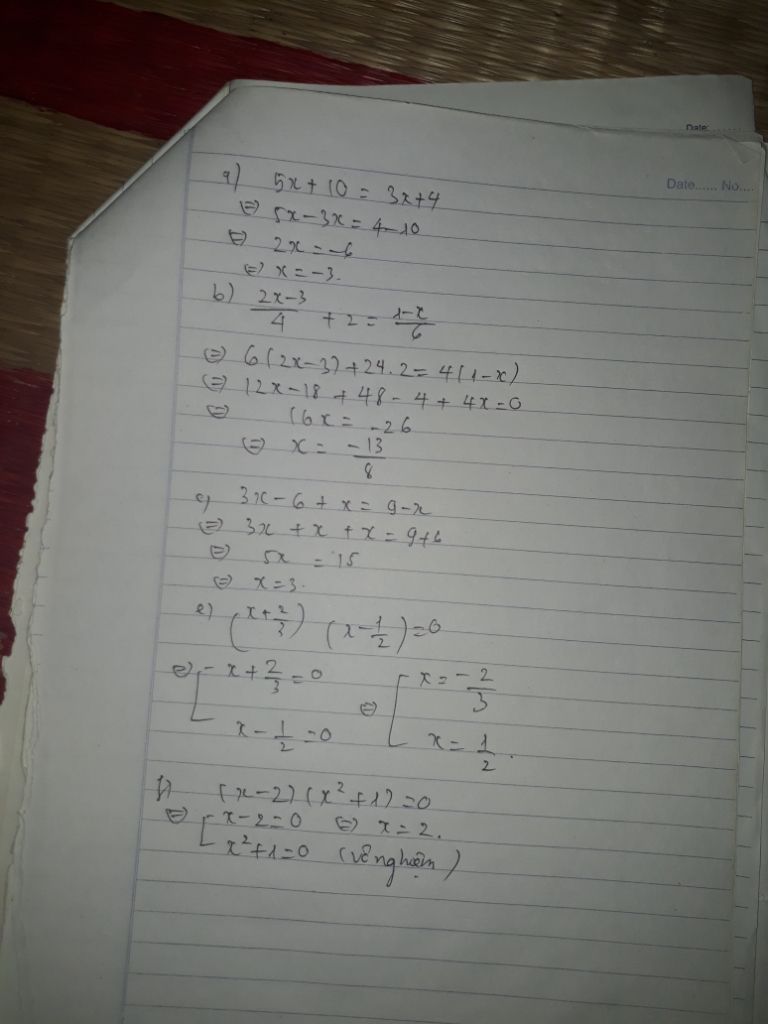 Date:
Date...... No....
a) 5x + 10 = 3x+4
⇔ 5x - 3x = 4-10
⇔ 2x = -6
⇔ x = -3.
b) \frac{2x-3}{4} + 2 = \frac{1-x}{6}
⇔ 6(2x-3)+24.2 = 4(1-x)
⇔ 12x-18 + 48 - 4 + 4x=0
⇔ 16x = -26
⇔ x = \frac{-13}{8}
c) 3x-6 + x = 9-x
⇔ 3x + x + x = 9+6
⇔ 5x = 15
⇔ x = 3.
e) (x+\frac{2}{3}) (x-\frac{1}{2})=0
⇔ [ x + \frac{2}{3} = 0 ⇔ [ x = -\frac{2}{3}
x - \frac{1}{2} = 0 x = \frac{1}{2}.
f) (x-2)(x²+1)=0
⇔ [ x-2=0 ⇔ x = 2.
x²+1=0 (vô nghiệm)